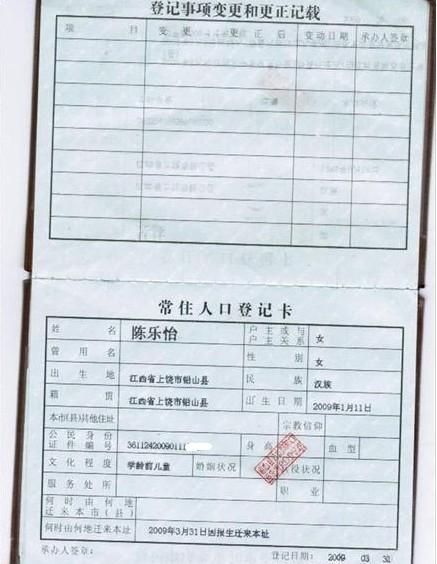 登记事项变更和更正记载
项 目 变更 更正后 变动日期 承办人签章
常住人口登记卡
姓名 陈乐怡 户主或与户主关系 女
曾用名 性别 女
出生地 江西省上饶市铅山县 民族 汉族
籍贯 江西省上饶市铅山县 出生日期 2009年1月11日
本市(县)其他住址 宗教信仰
公民身份证件编号 36112420090111 身高 血型
文化程度 学龄前儿童 婚姻状况 兵役状况
服务处所 职业
何时由何地迁来本市(县)
何时由何地迁来本址 2009年3月31日因报生迁来本址
承办人签章: 登记日期: 2009 03 31